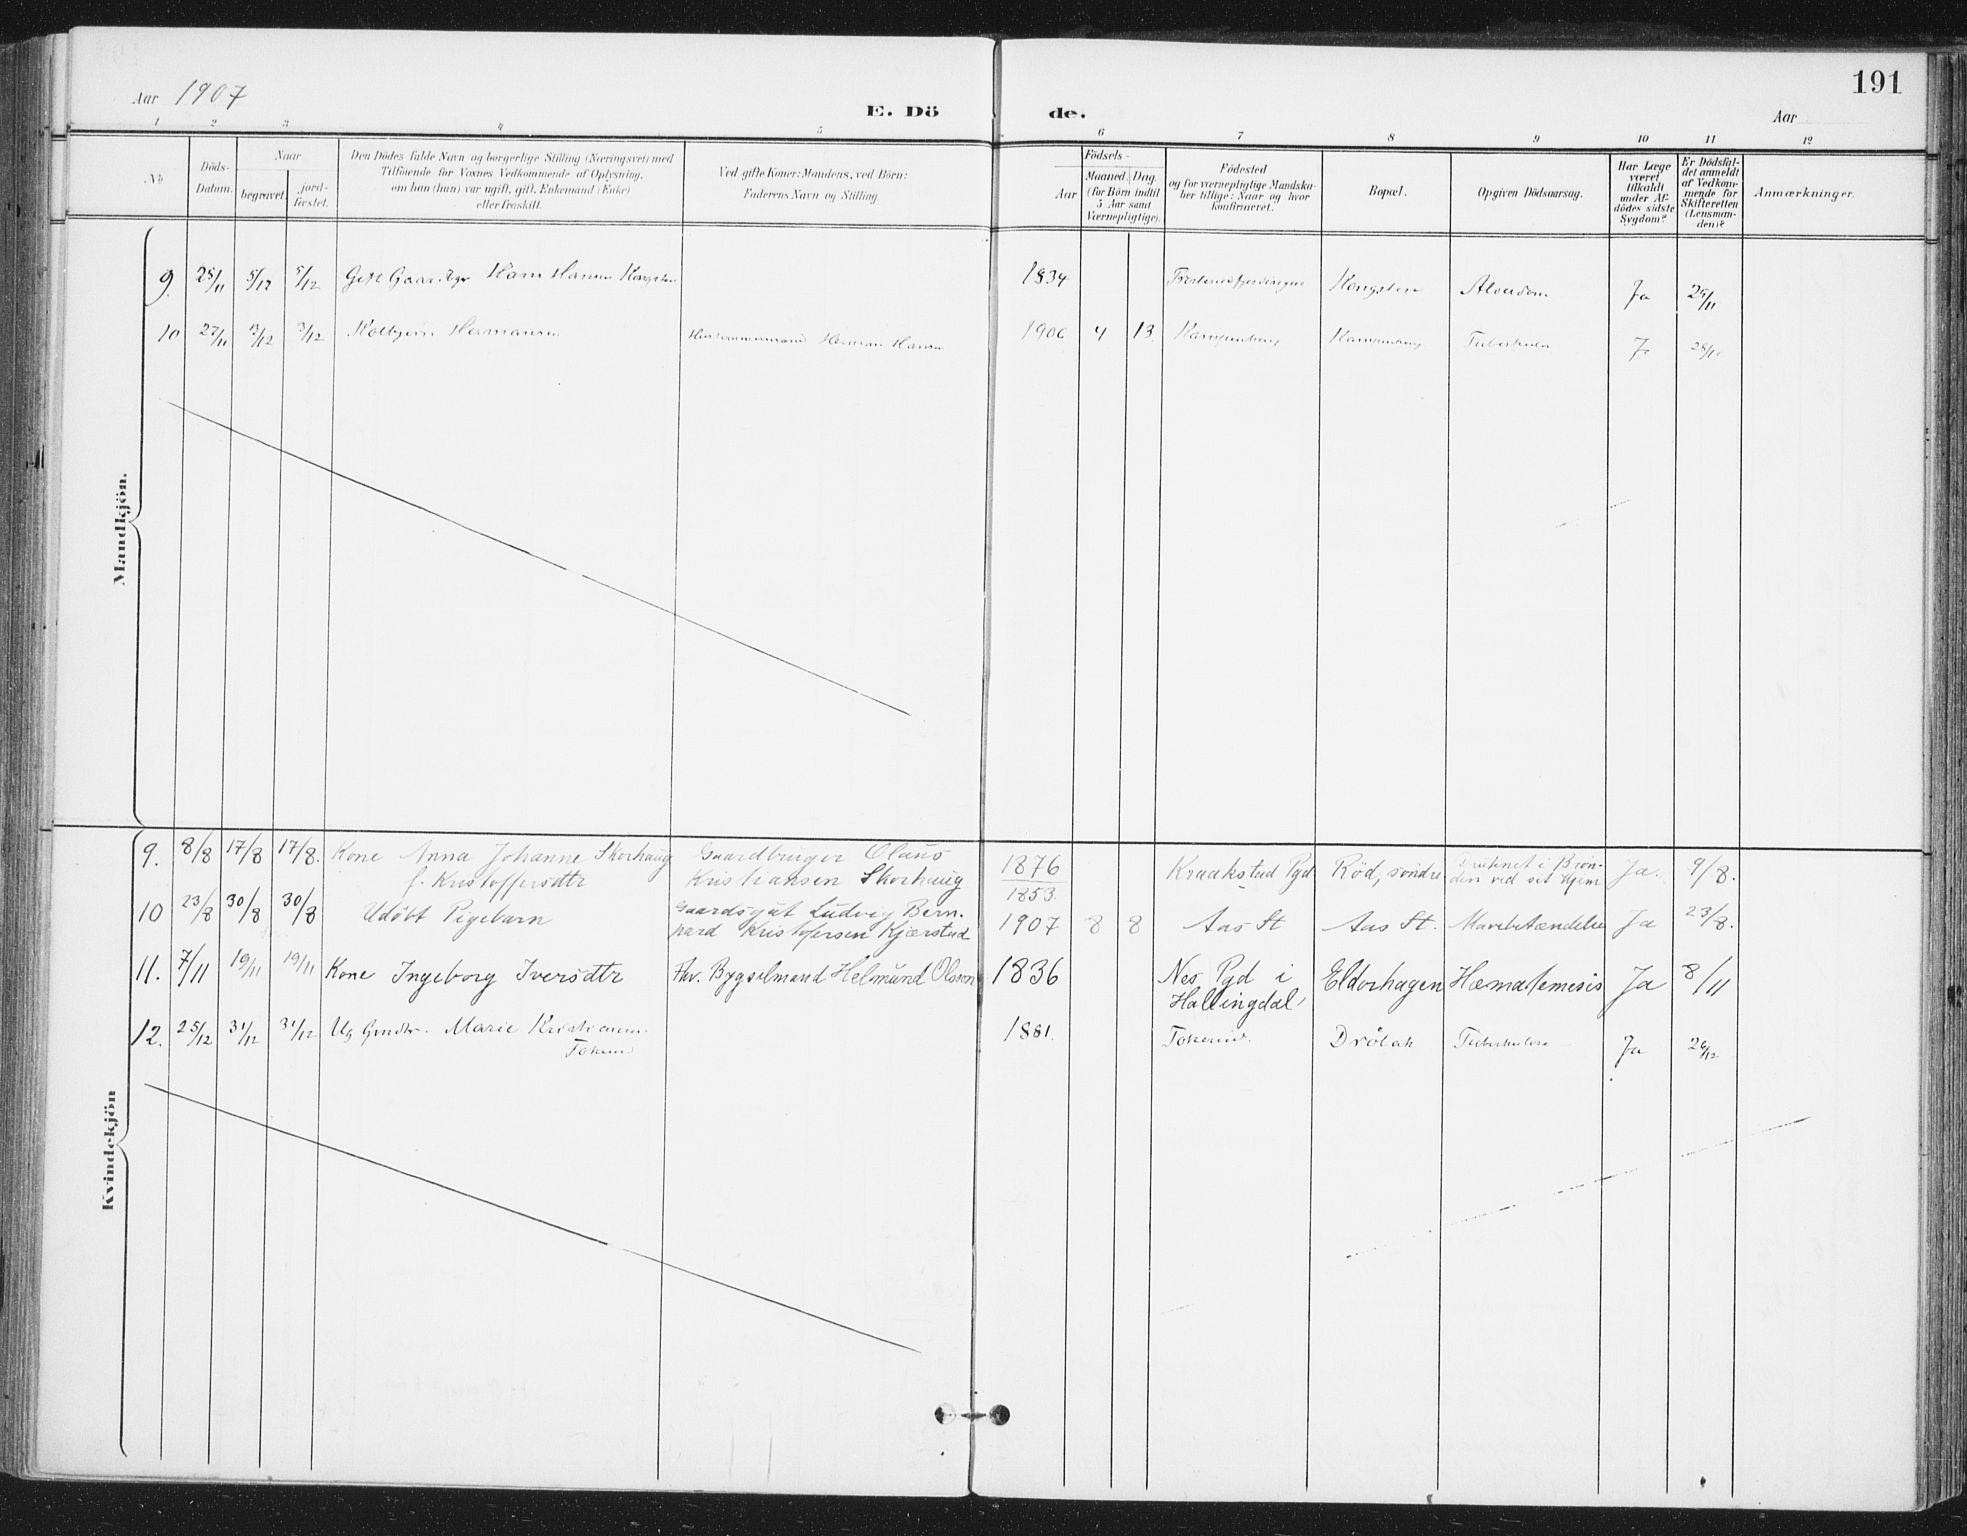 191
Aar 1907
E. Dö de.
Aar
1 2 3 4 5 6 7 8 9 10 11 12
No.
Döds-Datum.
Naar
begravet.
jord-fæstet.
Den Dödes fulde Navn og borgerlige Stilling (Næringsvei) med
Tilföiende for Voxnes Vedkommende af Oplysning,
om han (hun) var ugift, gift, Enkemand (Enke)
eller fraskilt.
Ved gifte Koner: Mandens, ved Börn:
Faderens Navn og Stilling.
Födsels-
Aar
Maaned. Dag.
(for Börn indtil
5 Aar samt
Værnepligtige).
Födested
og for værnepligtige Mandska-
ber tillige: Naar og hvor
konfirmeret.
Bopæl.
Opgiven Dödsaarsag.
Har Læge
været
tilkaldt
under Af-
dödes sidste
Sygdom?
Er Dödsfal-
det anmeldt
af Vedkom-
mende for
Skifteretten
(Lensman-
den)?
Anmærkninger.
Mandkjön.
9. 25/11 5/12 5/12 Hans Hansen 1834 Alderdom Ja 29/11
10 27/11 3/12 3/12 Kolbjørn Hermansen Herman Hansen 1906 4 13. Ja 28/11
Kvindekjön
9. 8/8 17/8 17/8. Kone Anna Johanne Skorhaug Gaardbruger Olaus 1876 Kraakstad Pgd Röd, söndre Druknet i Brön- Ja. 9/8.
f. Kristoffersdtr Kristiansen Skorhaug den ved sit Hjem
1853.
10 23/8 30/8 30/8 Udöbt Pigebarn Gaardsgut Ludvig Bern- 1907 8 8 Aas St Aas St. Mavebetændelse Ja 23/8.
hard Kristofersen Kjærstad
11. 7/11 19/11 19/11 Kone Ingeborg Iversdtr Fhv. Bygselmand Helmund Olsen 1836 Nes Pgd i Eldorhagen Hæmatemesis Ja 8/11
Hallingdal
12. 25/12 31/12 31/12 Ug Marie 1881. Drøbak Tuberkulose Ja 26/12